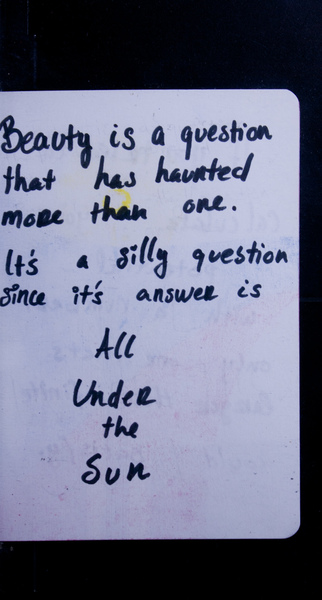 Beauty is a question
that has haunted
more than one.
It's a silly question
since it's answer is
All
Under
the
Sun